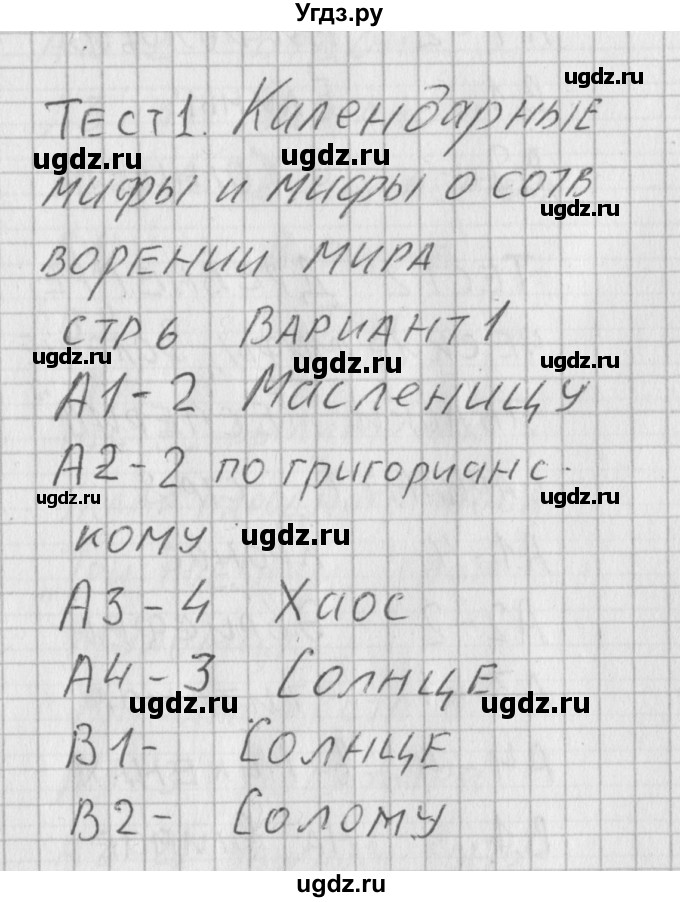 Угдз.ру
ugdz.ru
Тест 1. Календарные
ugdz.ru ugdz.ru
мифы и мифы о сотв
ugdz.ru
ворении мира
стр 6 Вариант 1
ugdz.ru ugdz.ru ugdz.ru
А1-2 Масленицу
А2-2 по григорианс-
ugdz.ru ugdz.ru
кому ugdz.ru
А3-4 Хаос
А4-3 Солнце
ugdz.ru ugdz.ru
В1- Солнце
В2- Солому
ugdz.ru